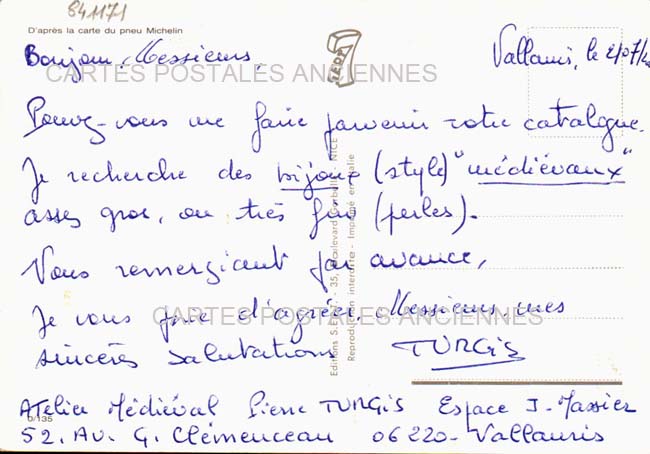 841171
D'après la carte du pneu Michelin
Bonjour, Messieurs,
Vallauris, le 2/07/
CARTES POSTALES ANCIENNES
Pouvez-vous me faire parvenir votre catalogue.
Je recherche des bijoux (style) "médiévaux"
assez gros, ou très fins (perles).
Vous remerciant par avance,
Je vous prie d'agréer, Messieurs, mes
CARTES POSTALES ANCIENNES
sincères salutations TURGIS
Editions S.E.P.T. - 35, Boulevard - NICE
Reproduction interdite - Imprimé en Italie
Atelier Médiéval Pierre TURGIS Espace J. Massier
6/135
52, Av. G. Clémenceau 06220-Vallauris